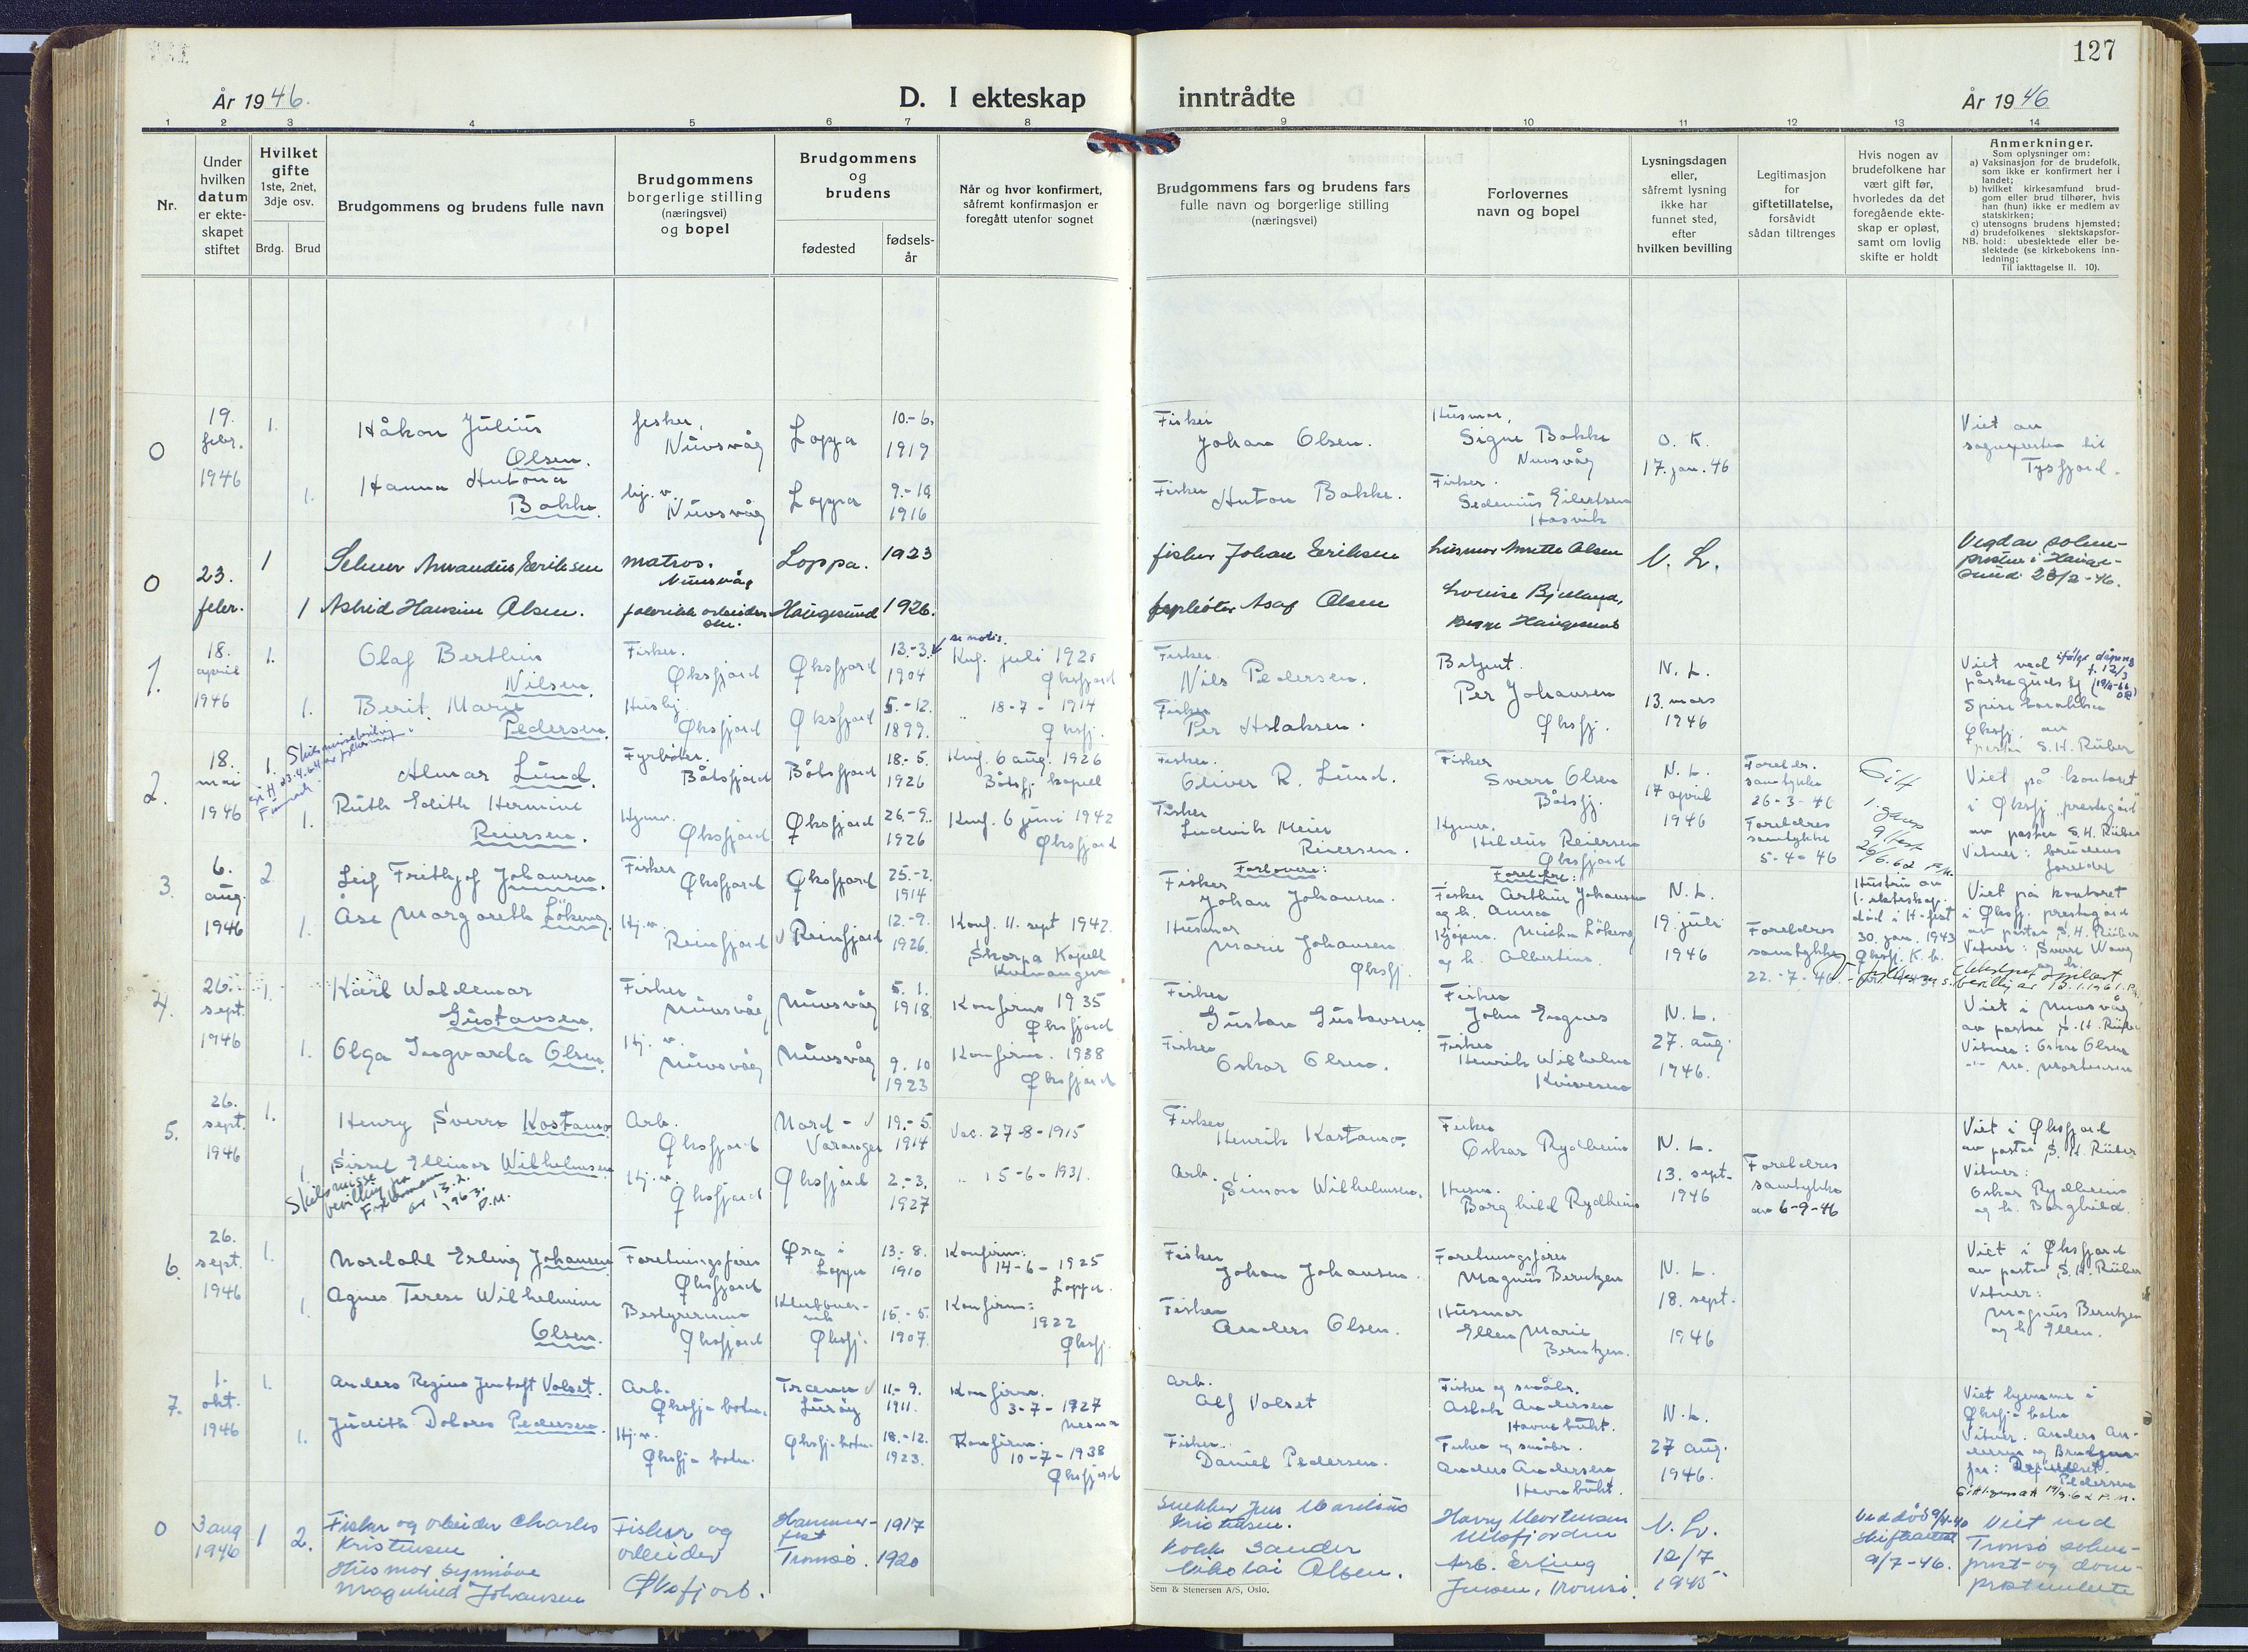 127
År 1946.
D. I ekteskap
inntrådte
År 1946
1 2 3 4 5 6 7 8 9 10 11 12 13 14
Nr.
Under
hvilken
datum
er ekte-
skapet
stiftet
Hvilket
gifte
1ste, 2net,
3dje osv.
Brdg.
Brud
Brudgommens og brudens fulle navn
Brudgommens
borgerlige stilling
(næringsvei)
og bopel
Brudgommens
og
brudens
fødested
fødsels-
år
Når og hvor konfirmert,
såfremt konfirmasjon er
foregått utenfor sognet
Brudgommens fars og brudens fars
fulle navn og borgerlige stilling
(næringsvei)
Forlovernes
navn og bopel
Lysningsdagen
eller,
såfremt lysning
ikke har
funnet sted,
efter
hvilken bevilling
Legitimasjon
for
giftetillatelse,
forsåvidt
sådan tiltrenges
Hvis nogen av
brudefolkene har
vært gift før,
hvorledes da det
foregående ekte-
skap er opløst,
samt om lovlig
skifte er holdt
Anmerkninger.
Som oplysninger om:
a) Vaksinasjon for de brudefolk,
som ikke er konfirmert her i
landet;
b) hvilket kirkesamfund brud-
gom eller brud tilhører, hvis
han (hun) ikke er medlem av
statskirken;
c) utensogns brudens hjemsted;
d) brudefolkenes slektskapsfor-
NB. hold: ubeslektede eller be-
slektede (se kirkebokens inn-
ledning;
Til iakttagelse II. 10).
0
19.
febr.
1946
1.
Håkon Julius
Olsen.
fisker,
Nuvsvåg
Loppa
10.-6.
1919
Fisker
Johan Olsen.
Husmor,
Signe Bakke
Nuvsvåg
O. K.
17. jan. 46
Viet av
sognepresten til
Tysfjord.
1.
Hanna Antona
Bakke.
hj. v.
Nuvsvåg
Loppa
1916
Fisker Anton Bakke.
Fisker.
Sedenius Eilertsen
Hasvik
0
23.
febr.
1
Selmer Amandus Eriksen
matros.
Nuvsvåg
Loppa.
1923
fisker Johan Eriksen
husmor Anette Olsen
N. L.
Vigd av sokne-
presten i Hauge-
sund 23/2-46.
1
Astrid Hansine Olsen.
fabrikk arbeider-
Haugesund
1926.
Asaf Olsen
Louise Bjelland,
Haugesund
1.
18.
april
1946
1.
Olaf Berthin
Nilsen.
Fisker.
Øksfjord
Øksfjord
13.-3.
1904
se notis.
Knf. juli 1920
Øksfjord
Fisker.
Nils Pedersen.
Betjent.
Per Johansen
Øksfj.
N. L.
13. mars
1946
Viet ved
påskegudstj
Øksfj. av
pastor S. H. Rüber
1.
Berit Marie
Pedersen.
Hushj.
Øksfjord
Øksfjord
5.-12.
1899.
" 18-7-1914
Øksfj.
Fisker
Per Aslaksen.
2.
18.
mai
1946
1.
Almar Lund.
Fyrbøter.
Båtsfjord
Båtsfjord
18.-5.
1926
Knf. 6 aug. 1926
Båtsfj. kapell
Fisker.
Oliver R. Lund.
Fisker
Sverre Olsen
Båtsfj.
N. L.
17 april
1946
Foreldr.
samtykke
26-3-46
Viet på kontoret
i Øksfj. prestegård
av pastor S. H. Rüber
Vitner: brudens
foreldre
1.
Ruth Edith Hermine
Reiersen.
Øksfjord
Øksfjord
26.-9.
1926
Knf. 6 juni 1942
Øksfjord
Fisker
Ludvik Meier
Reiersen.
Hildur Reiersen
Øksfjord
Foreldres
samtykke
5-4-46
3.
6.
aug.
1946
2.
Leif Frithjof Johansen.
Fisker
Øksfjord
Øksfjord
25.-2.
1914
Forlovere:
Fisker
Johan Johansen.
Foreldre:
Fisker Arthur Johansen
og h. Anna
N. L.
19. juli
1946
Hustru av
1. ekteskap
død i H-fest
30. jan. 1943
Øksfj. K. b.
Viet på kontoret
i Øksfj. prestegård
av pastor S. H. Rüber
1.
Åse Margareth Løkeng
Hj. v.
Reinfjord
Reinfjord
12.-9.
1926.
Konf. 11. sept 1942.
Skorpa Kapell
Kvænangen
Husmor
Marie Johansen
Øksfj.
og h. Albertine.
Foreldres
samtykke
22.-7.-46.
4.
26.
sept.
1946
1.
Karl Waldemar
Gustavsen.
Fisker
Nuvsvåg
Nuvsvåg
5. 1.
1918.
Konfirm. 1935
Øksfjord
Fisker
Gustav Gustavsen
Fisker
John Engnes
N. L.
27. aug.
1946.
Viet i Nuvsvåg
av pastor S. H. Rüber
Vitner: Oskar Olsen
1.
Olga Ingvarda Olsen.
Hj. v.
Nuvsvåg
Nuvsvåg
9. 10
1923
Konfirm. 1938
Øksfjord
Fisker
Oskar Olsen.
Fisker
Henrik Wilhelm
5.
26.
sept.
1946
1.
Henry Sverre Kostamo.
Arb.
Øksfjord
Nord-
Varanger
19.-5.
1914
Vac. 27-8-1915
Fisker
Henrik Kostamo.
Fisker
Oskar Rydheim
N. L.
13. sept.
1946
Viet i Øksfjord
av pastor S. H. Rüber
Vitner:
Oskar Rydheim
og h. Borghild.
1.
Sissel Ellinor Wilhelmsen
Hj. v.
Øksfjord
Øksfjord
2.-3.
1927
" 15-6-1931.
Arb.
Simon Wilhelmsen.
Husm.
Borghild Rydheim
Foreldres
samtykke
av 6-9-46
Skilsmisse
bevilling fra
Fylkesmann
av 13.2.
1963.
P.M.
6.
26.
sept.
1946
1.
Nordahl Erling Johansen
Forretningsfører
Øksfjord
Øra i
Loppa
13.-8.
1910
Konfirm:
14-6-1925
Loppa.
Fisker
Johan Johansen.
Forretningsfører
Magnus Berntzen
N. L.
18. sept.
1946
Viet i Øksfjord
av pastor S. H. Rüber
Vitner:
Magnus Berntzen
og h. Ellen.
1.
Agnes Terese Wilhelmine
Olsen.
Bestyrerinne
Øksfjord
Øksfj.
15.-5.
1907.
Konfirm:
1922
Øksfj.
Fisker
Anders Olsen.
Husmor
Ellen Marie
Berntzen.
7.
1.
okt.
1946
1.
Anders Regius Jentoft Volset.
Arb.
Øksfj. botn.
Træna
Lurøy
11.-9.
1911.
Konfirm.
3-7-1927
Nesna
Arb.
Alf Volset
Fisker og småbr.
Aslak Andersen
Havnebukt.
N. L.
27 aug.
1946.
Viet hjemme i
Øksfj. botn
Vitner. Anders An-
dersen og
Pedersen
1.
Judith Dolores Pedersen.
Hj. v.
Øksfj. botn.
Øksfj. botn.
18.-12.
1923.
Konfirm.
10-7-1938
Øksfjord
Fisker.
Daniel Pedersen.
Fisker og småbr.
Anders Andersen
Havnebukt.
0
3 aug
1946
1
2.
Fisker og arbeider Charles
Kristensen
Husmor Synnøve
Magnhild Johansen
Fisker og
arbeider
Øksfjord.
Hammer-
fest
Tromsø.
1917
1920
Snekker Jens Mardius
Kristensen.
Kokk Sander
Nikolai Olsen.
Harry Mortensen
Ulsfjorden
Arb. Erling
Jensen, Tromsø.
N. L.
12/7
1945
Ved død 9/4-40
Skifteattest
9/7-46.
Viet ved
Tromsø sokne-
prest- og dom-
prostembete
Sem & Stenersen A/S, Oslo.